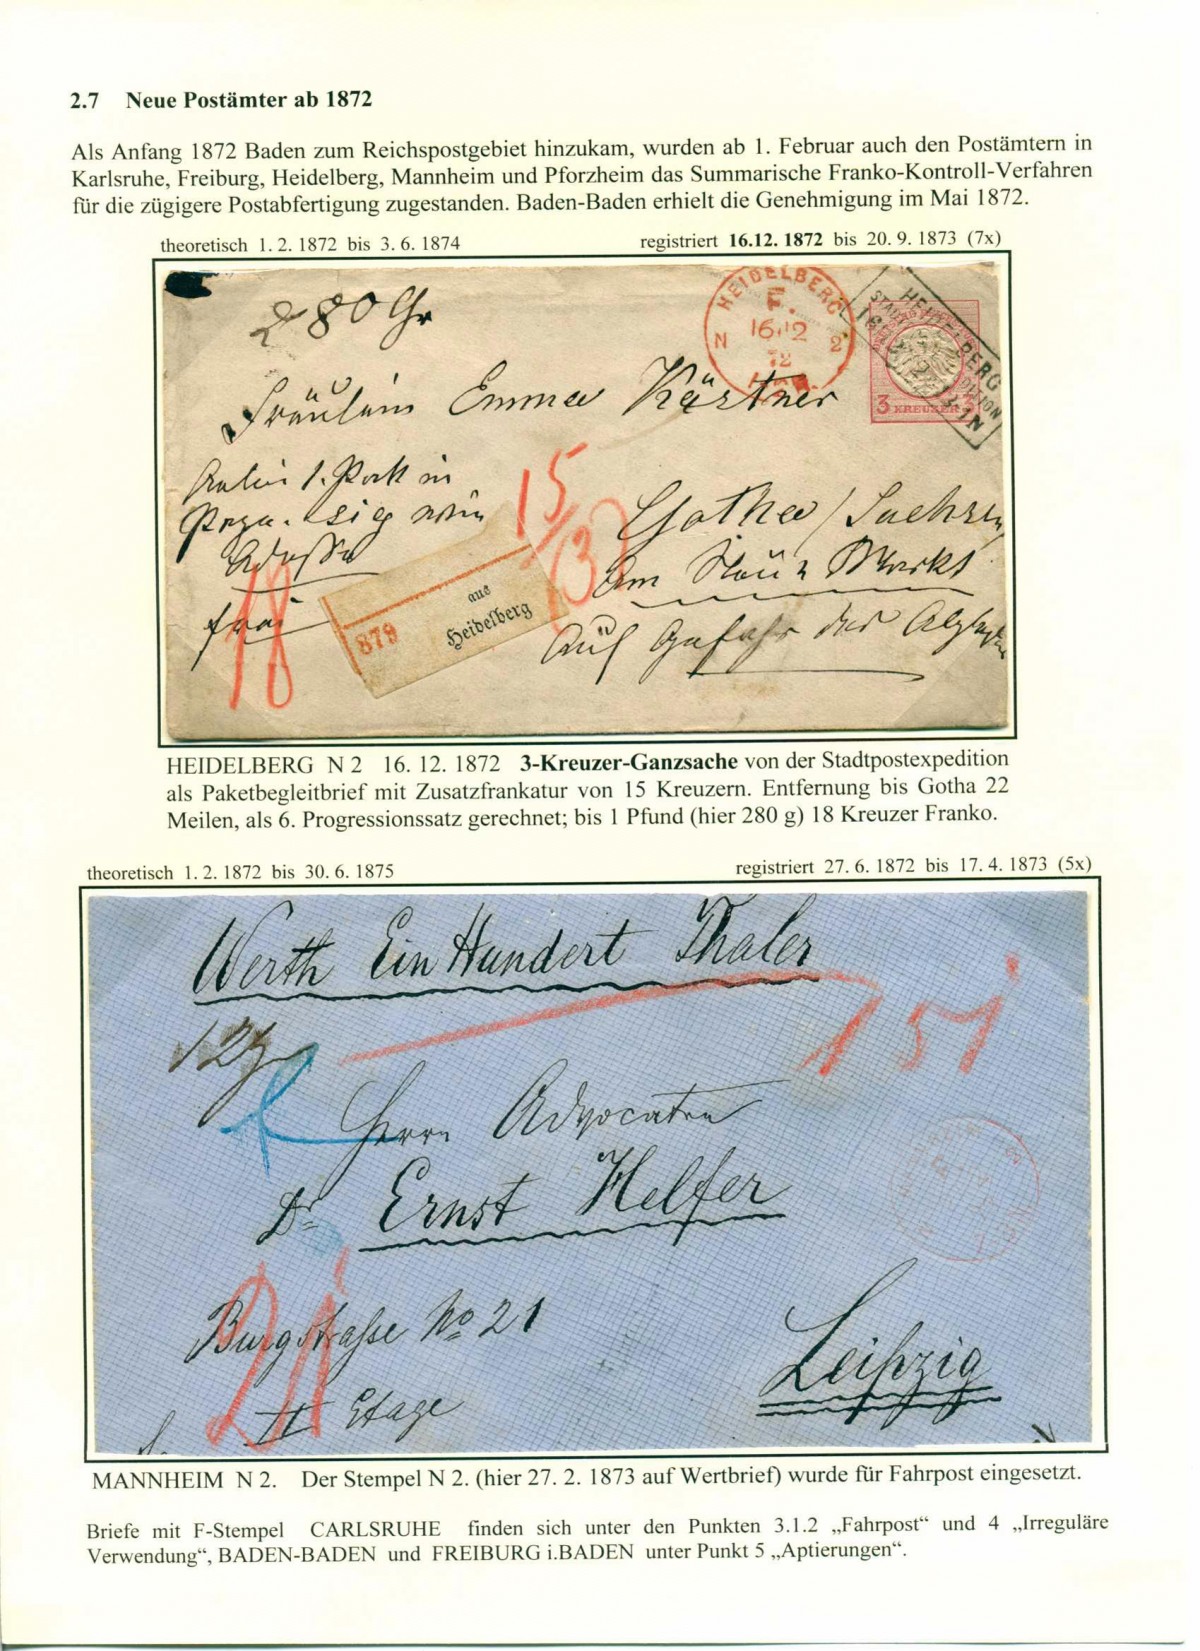 2.7 Neue Postämter ab 1872
Als Anfang 1872 Baden zum Reichspostgebiet hinzukam, wurden ab 1. Februar auch den Postämtern in
Karlsruhe, Freiburg, Heidelberg, Mannheim und Pforzheim das Summarische Franko-Kontroll-Verfahren
für die zügigere Postabfertigung zugestanden. Baden-Baden erhielt die Genehmigung im Mai 1872.
theoretisch 1. 2. 1872 bis 3. 6. 1874 registriert 16.12. 1872 bis 20. 9. 1873 (7x)
280 Gr
HEIDELBERG
F.
16.12
N 72 2
HEIDELBERG
3 KREUZER 3
Fräulein Emma Kärstner
15
/3
Gotha / Sachsen
Am Markt
Auf Gefahr des
18
frei
aus
Heidelberg
879
HEIDELBERG N 2 16. 12. 1872 3-Kreuzer-Ganzsache von der Stadtpostexpedition
als Paketbegleitbrief mit Zusatzfrankatur von 15 Kreuzern. Entfernung bis Gotha 22
Meilen, als 6. Progressionssatz gerechnet; bis 1 Pfund (hier 280 g) 18 Kreuzer Franko.
theoretisch 1. 2. 1872 bis 30. 6. 1875 registriert 27. 6. 1872 bis 17. 4. 1873 (5x)
Werth Ein Hundert Thaler
Herrn Advocaten
Dr Ernst Helfer
Burgstraße No 21
II Etage
Leipzig
MANNHEIM N 2. Der Stempel N 2. (hier 27. 2. 1873 auf Wertbrief) wurde für Fahrpost eingesetzt.
Briefe mit F-Stempel CARLSRUHE finden sich unter den Punkten 3.1.2 „Fahrpost“ und 4 „Irreguläre
Verwendung“, BADEN-BADEN und FREIBURG i.BADEN unter Punkt 5 „Aptierungen“.